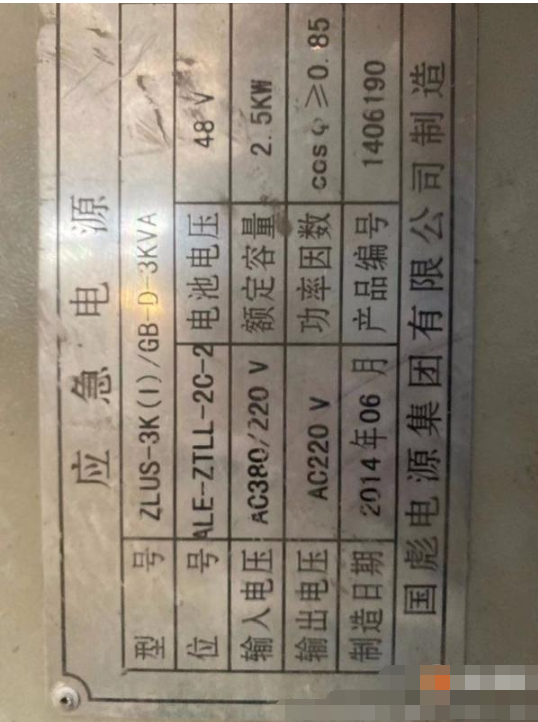 应急电源
型号 ZLUS-3K(I)/GB-D-3KVA
位号 ALE-ZTLL-2C-2 电池电压 48 V
输入电压 AC380/220 V 额定容量 2.5KW
输出电压 AC220 V 功率因数 cosφ≥0.85
制造日期 2014年06月 产品编号 1406190
国彪电源集团有限公司制造